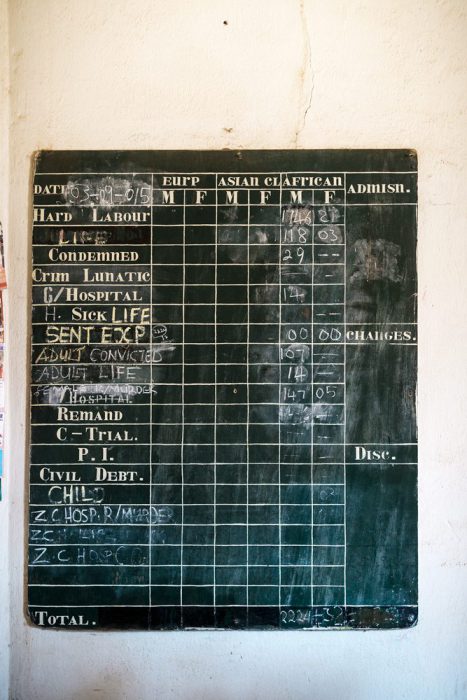 DATE 03-09-015 EURP ASIAN CL AFRICAN ADMISN.
M F M F M F
HARD LABOUR 1746
LIFE 118 03
CONDEMNED 29 --
CRIM LUNATIC -- --
G/HOSPITAL 14
H. SICK LIFE --
SENT EXP 00 00 CHANGES.
ADULT CONVICTED 167 --
ADULT LIFE 14 --
R/MURDER
HOSPITAL 147 05
REMAND --
C-TRIAL. --
P. I. -- DISC.
CIVIL DEBT.
CHILD
Z.C HOSP. R/MURDER
Z.C
Z.C HOSP C.O.
TOTAL. 2224-32